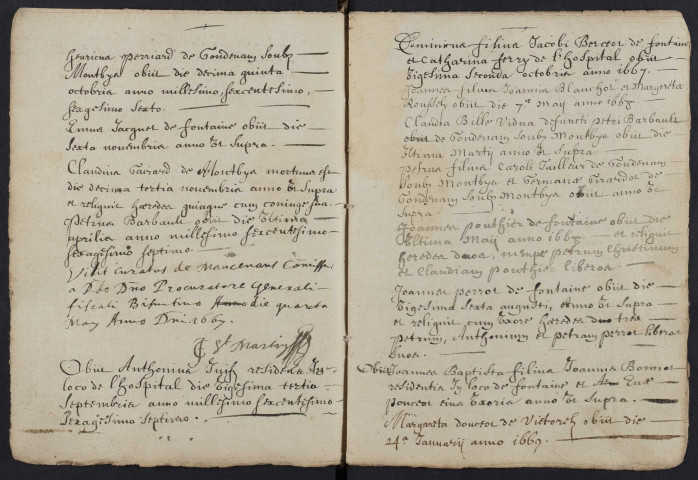 henricus perriard de Gondenam Soub
Montbye obiit die decima quinta
octobris anno millesimo, sexcentesimo,
sexagesimo sexto.
Emus Jacquet de fontaine obiit die
sexta novembris anno ut supra.
Claudius Gaivard de Montbya mortuus est
die decima tertia novembris anno ut supra
et reliquit heredes quinque cum coniuge sua
Petrus Barbault obiit die ultima
aprilis anno millesimo sexcentesimo
sexagesimo septimo
Visit Curatus de Mancenans Commiss
a Rdo Dno Procuratore Generali
fiscali Bisuntino die quarta
May Anno Dni 1667
Martin
Obiit Anthonius residens In
loco de l'hospital die vigesima tertia
Septembris anno millesimo sexcentesimo
sexagesimo septimo.
Dominicus filius Jacobi Berceot de fontaine
et Catharina ferry de l'hospital obiit
vigesima secunda octobris anno 1667.
Joannes filius Joannis Blanchot et Margareta
Rousseh obiit die 7a Maij anno 1668
Claudia Bille Vidua defuncti petri Barbault
obiit de Gondenam Soub Montbya obiit die
ultima Martij anno ut Supra
Petrus filius Caroli Tailleur de Gondenam
Soub Montbya et Germanæ Girardot de
Gondenam Soub Montbya obiit anno ut
Supra
Joannes ponthier de fontaine obiit die
ultima Maij anno 1668 et reliquit
heredes duos, nempe petrum Christinum
et Claudiam ponthier liberos.
Joannes perrot de fontaine obiit die
vigesima sexta augusti, anno ut Supra
et reliquit cum uxore heredes tres
petrum, Anthonium et petram perrot liberos
suos.
Obiit Joannes Baptista filius Joannis Bornior
residentis In loco de fontaine et
ponceot eius uxoris anno ut Supra.
Margareta doucior de Vietoreh obiit die
24a Januarij anno 1669.